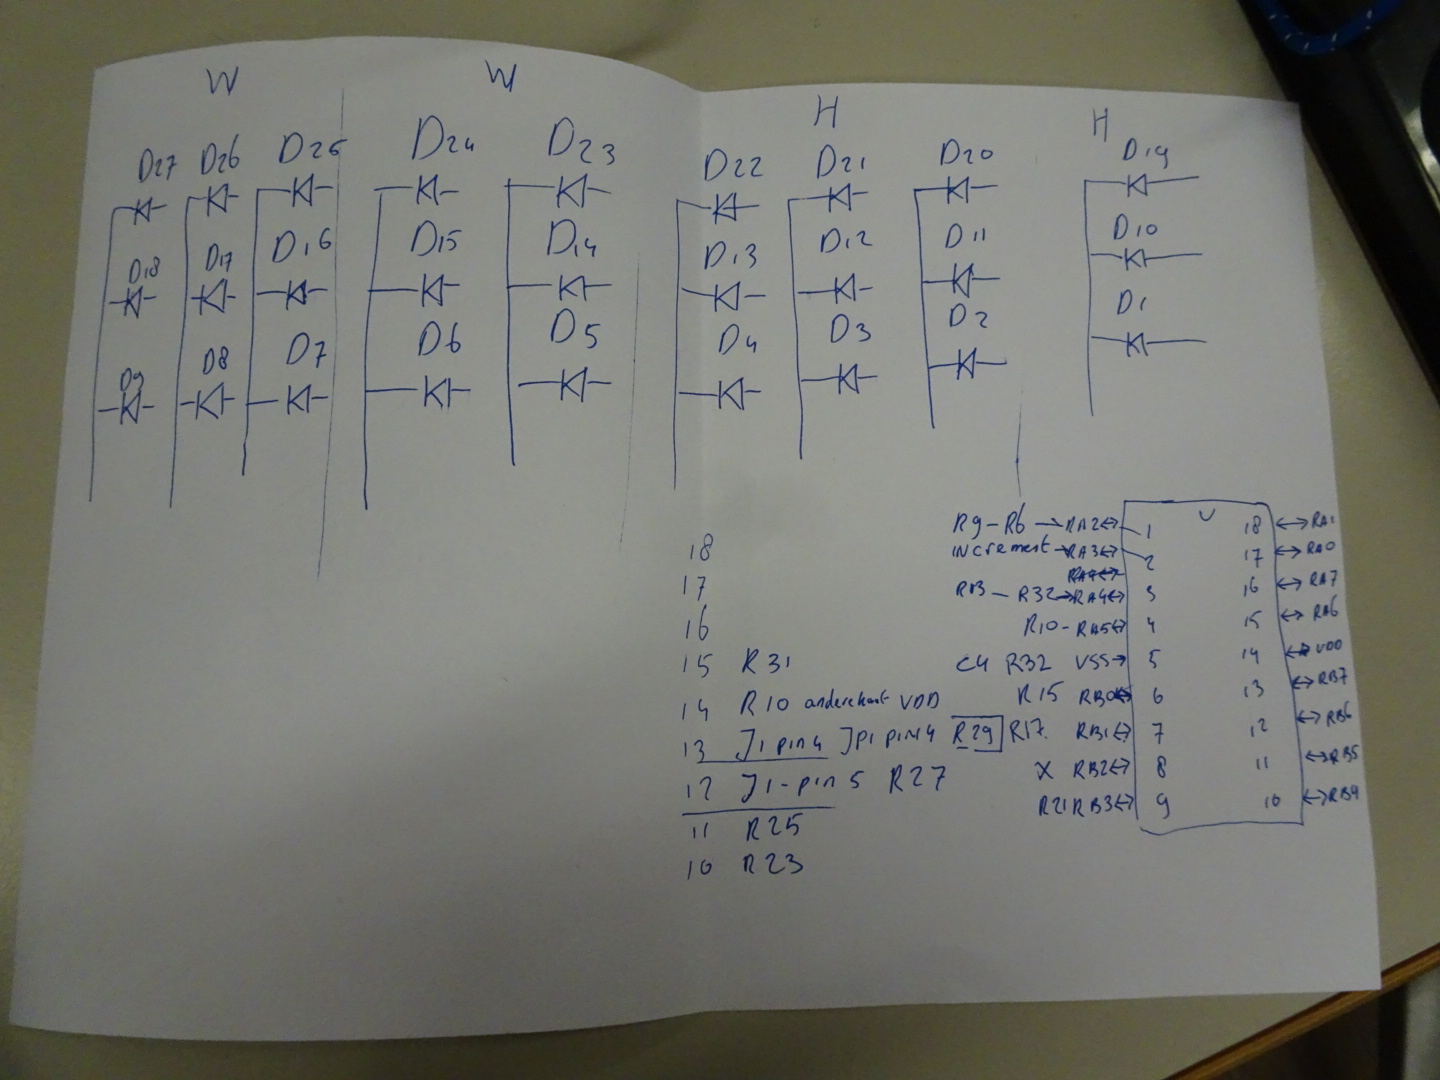 W W H H
D27 D26 D25 D24 D23 D22 D21 D20 D19
D18 D17 D16 D15 D14 D13 D12 D11 D10
D9 D8 D7 D6 D5 D4 D3 D2 D1
18
17
16
15 R31
14 R10 anderekant VDD
13 J1 pin4 JP1 pin4 R29
12 J1-pin 5 R27
11 R25
10 R23
R9-R6 → RA2 ↔ 1 18 ↔ RA1
increment → RA3 ↔ 2 17 ↔ RA0
R32 → RA4 ↔ 3 16 ↔ RA7
R10 - RA5 ↔ 4 15 ↔ RA6
C4 R32 VSS → 5 14 VDD
R15 RB0 6 13 ↔ RB7
R17 RB1 ↔ 7 12 ↔ RB6
X RB2 ↔ 8 11 ↔ RB5
R21 RB3 ↔ 9 10 ↔ RB4